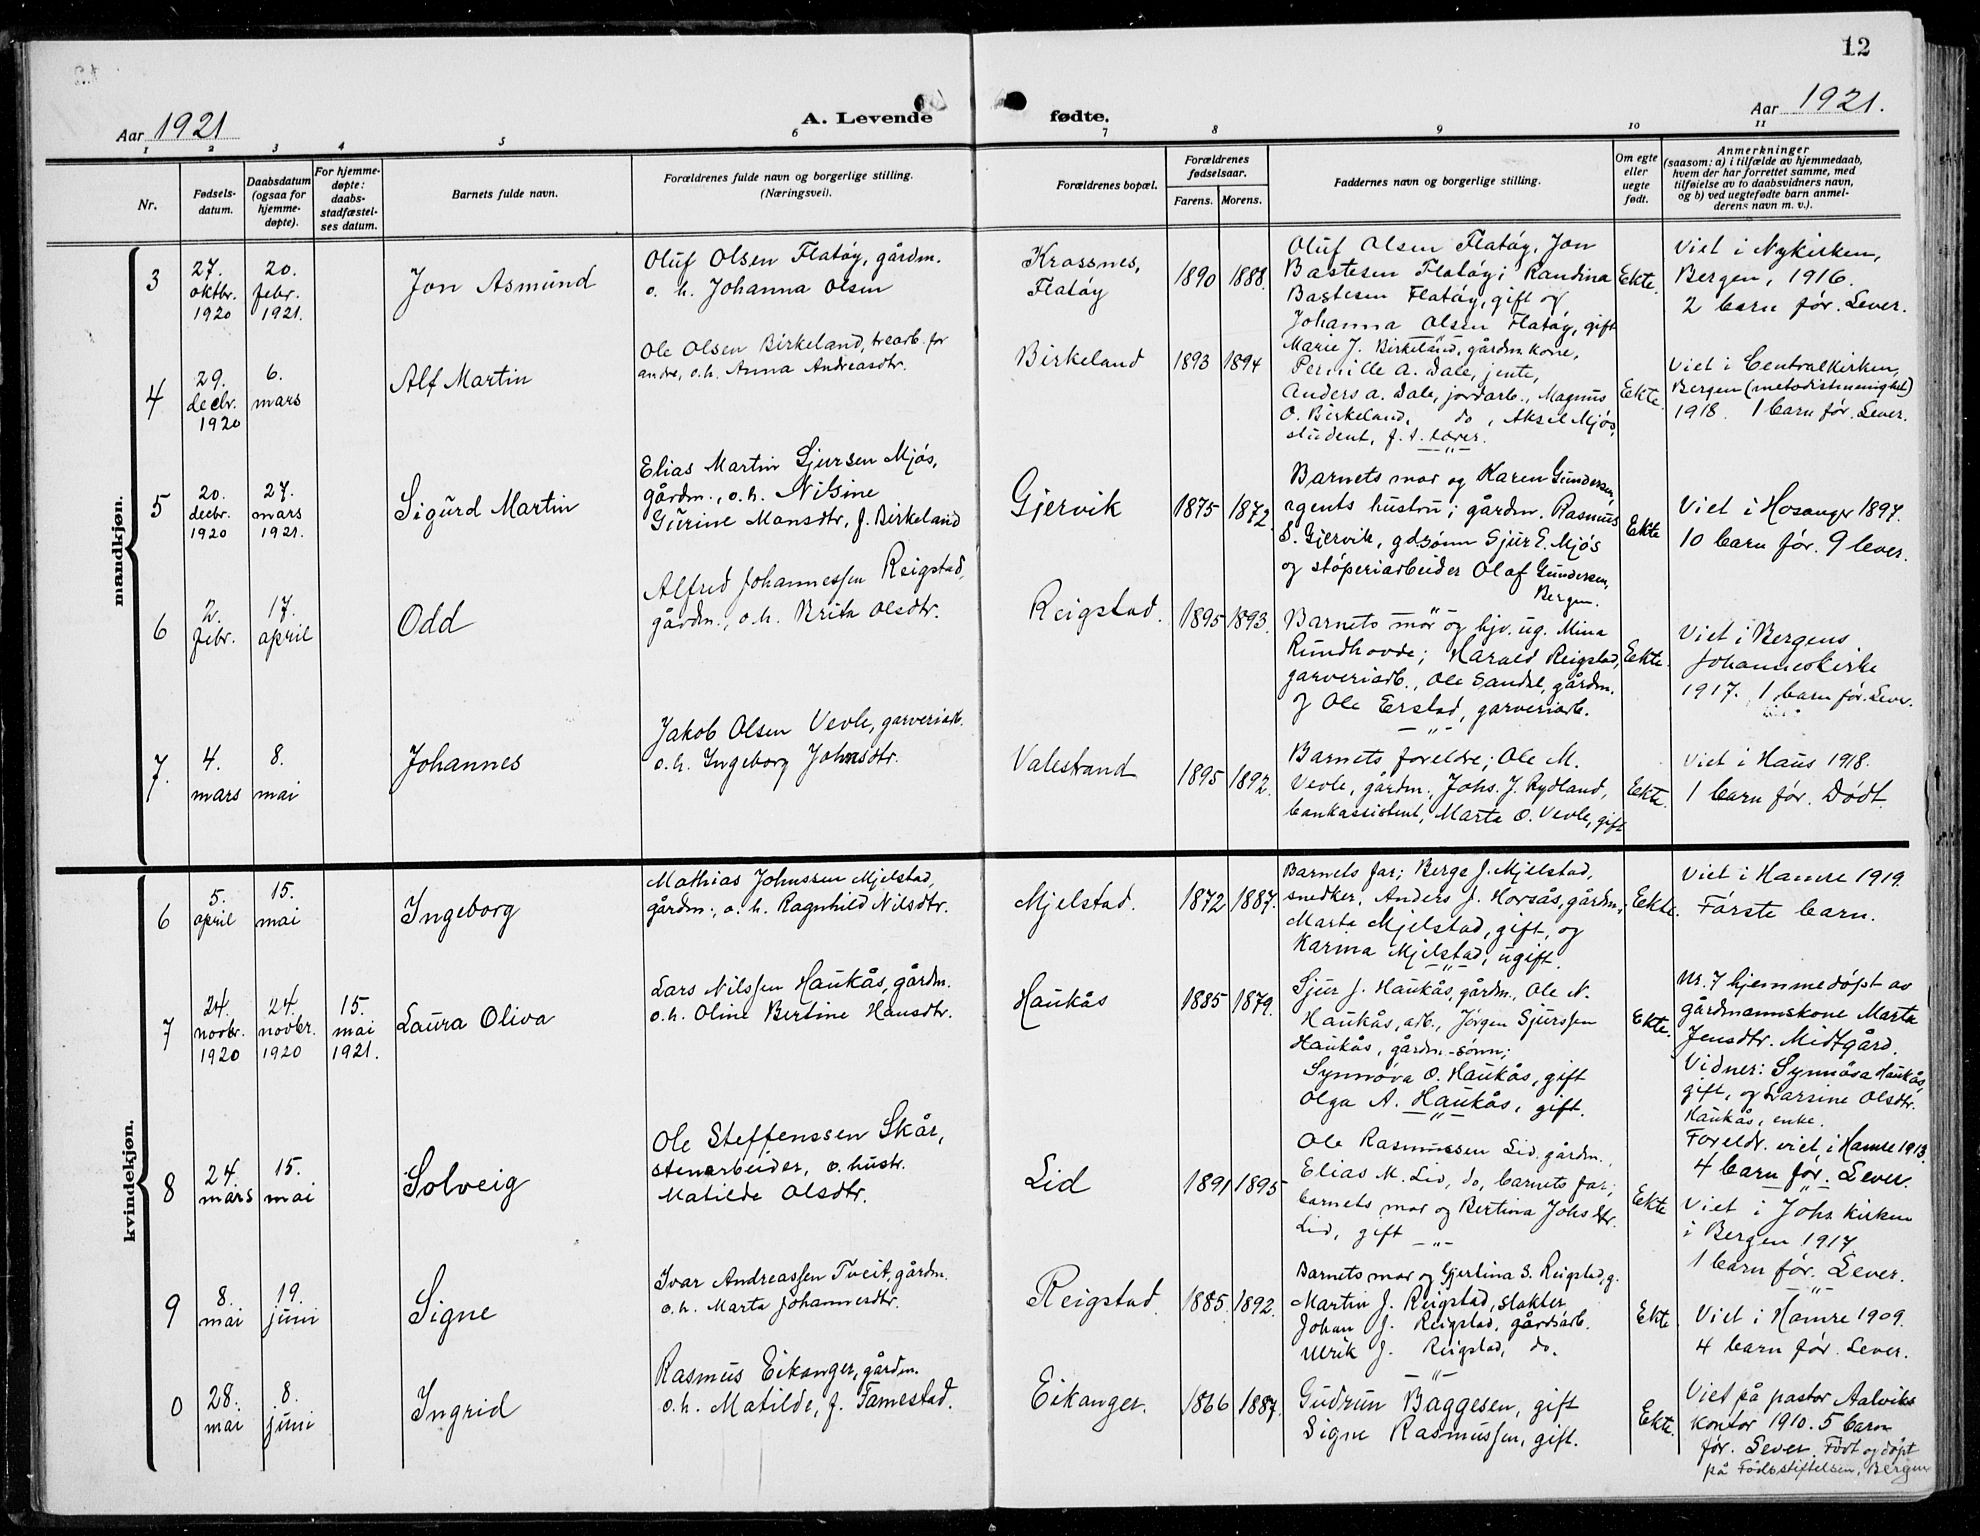 12
Aar 1921
A. Levende fødte.
Aar 1921.
1 2 3 4 5 6 7 8 9 10 11
Nr.
Fødsels-
datum.
Daabsdatum
(ogsaa for
hjemme-
døpte).
For hjemme-
døpte:
daabs-
stadfæstel-
ses datum.
Barnets fulde navn.
Forældrenes fulde navn og borgerlige stilling.
(Næringsvei).
Forældrenes bopæl.
Forældrenes
fødselsaar.
Farens. Morens.
Faddernes navn og borgerlige stilling.
Om egte
eller
uegte
født.
Anmerkninger
(saasom: a) i tilfælde av hjemmedaab,
hvem der har forrettet samme, med
tilføielse av to daabsvidners navn,
og b) ved uegtefødte barn anmel-
derens navn m. v.).
mandkjøn.
3
27.
oktbr.
1920
20.
febr.
1921.
Jon Asmund
Oluf Olsen Flatöy, gårdm.
o. h. Johanna Olsen
Krossnes,
Flatöy
1890 1888.
Oluf Olsen Flatöy, Jon
Bastesen Flatöy; Randina
Bastesen Flatöy, gift og
Johanna Olsen Flatöy, gift
Ekte.
Viet i Nykirken,
Bergen, 1916.
2 barn før. Lever.
4
29.
decbr.
1920
6.
mars
Alf Martin
Ole Olsen Birkeland, trearb. for
andre, o.h. Anna Andreasdtr.
Birkeland
1893 1894
Marie J. Birkeland, gårdm. kone,
Pernille A. Dale, jente,
Anders A. Dale, jordarb., Magnus
O. Birkeland, do, Aksel Mjös,
student, f. t. lærer.
Ekte.
Viet i Centralkirken,
Bergen (metodistmenighet)
1918. 1 barn før. Lever.
5
20.
decbr.
1920
27.
mars
1921.
Sigurd Martin
Elias Martin Sjursen Mjös,
gårdm., o.h. Nilsine
Gurine Monsdtr, f. Birkeland
Gjervik
1875 1872
Barnets mor og Karen Gundersen,
agents hustru; gårdm. Rasmus
S. Gjervik, gdsönn Sjur E. Mjös
og stöperiarbeider Olaf Gundersen,
Bergen.
Ekte
Viet i Hosanger 1897.
10 barn før. 9 lever.
6
2.
febr.
17.
april
Odd
Alfred Johannessen Reigstad,
gårdm., o.h. Brita Olsdtr.
Reigstad.
1895 1893.
Barnets mor og hjv. ug. Mina
Rundhovde; Harald Reigstad,
garveriarb., Ole Sandal, gårdm.
og Ole Erstad, garveriarb.
Ekte.
Viet i Bergens
Johanneskirke
1917. 1 barn før. Lever.
7.
4.
mars
8.
mai
Johannes
Jakob Olsen Vevle, garveriarb.
o.h. Ingeborg Johnsdtr.
Valestrand
1895 1892.
Barnets foreldre; Ole M.
Vevle, gårdm., Johs. J. Rydland,
bankassistent, Marta O. Vevle, gift
Ekte.
Viet i Haus 1918.
1 barn før. Dödt.
kvindekjøn.
6
5.
april
15.
mai
Ingeborg
Mathias Johnssen Mjelstad,
gårdm., o. h. Ragnhild Nilsdtr.
Mjelstad.
1872 1887.
Barnets far; Berge J. Mjelstad,
snedker, Anders J. Horsås, gårdm.,
Marta Mjelstad, gift, og
Karina Mjelstad, ugift.
Ekte.
Viet i Hamre 1919.
Förste barn.
7
24.
novbr.
1920
24.
novbr.
1920
15.
mai
1921.
Laura Oliva
Lars Nilssen Haukås, gårdm.
o.h. Oline Bertine Hansdtr.
Haukås
1885 1879.
Sjur J. Haukås, gårdm., Ole N.
Haukås, arb., Jörgen Sjurssen
Haukås, gårdm.-sönn;
Synnöva O. Haukås, gift
Olga A. Haukås, gift.
Ekte.
Nr. 7 hjemmedöpt av
gårdmannskone Marta
Jensdtr. Midtgård.
Vidner: Synnöva Haukås,
gift, og Larsine Olsdtr.
Haukås, enke.
Foreldr. viet i Hamre 1913.
4 barn før. Lever.
8
24.
mars
15.
mai
Solveig
Ole Steffenssen Skår,
stenarbeider, o. hustr.
Matilde Olsdtr.
Lid
1891 1895
Ole Rasmussen Lid, gårdm.,
Elias M. Lid, do, barnets far;
barnets mor og Bertina Johsdtr.
Lid, gift
Ekte
Viet i Johs. kirken
i Bergen 1917
1 barn før. Lever.
9
8.
mai
19.
juni
Signe
Ivar Andreassen Tveit, gårdm.
o.h. Marta Johannesdtr.
Reigstad.
1885. 1892.
Barnets mor og Gjertina S. Reigstad, g.
Martin J. Reigstad, slakter
Johan J. Reigstad, gårdsarb.
Ulrik J. Reigstad, do.
Ekte.
Viet i Hamre 1909.
4 barn før. Lever.
0
28.
mai
8.
juni
Ingrid
Rasmus Eikanger, gårdm.
o.h. Matilde, f. Famestad.
Eikanger.
1866 1887.
Gudrun Baggesen, gift
Signe Rasmussen, gift.
Ekte.
Viet på pastor Aalviks
kontor 1910. 5 barn
før. Lever. Födt og döpt
på Födsstiftelsen, Bergen